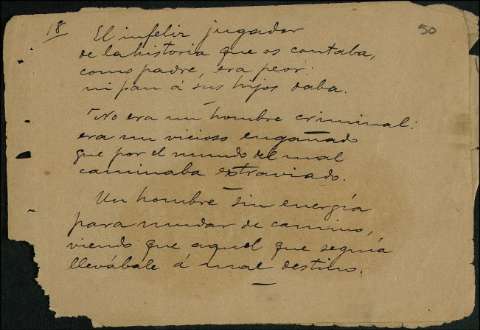 18
50
El infeliz jugador
de la historia que os contaba,
como padre, era peor:
ni pan á sus hijos daba.
No era un hombre criminal:
era un vicioso engañado
que por el mundo del mal
caminaba extraviado.
Un hombre sin energía
para mudar de camino,
viendo que aquel que seguía
llevábale á mal destino.